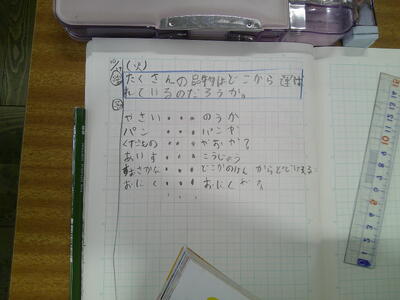 (火)
たくさんの品物はどこから運ば
れているのだろうか。
やさい・・・のうか
パン・・・パンや
くだもの・・・やおや?
あいす・・・こうじょう
おさかな・・・どこかのけんからとどけてる
おにく・・・おにくや